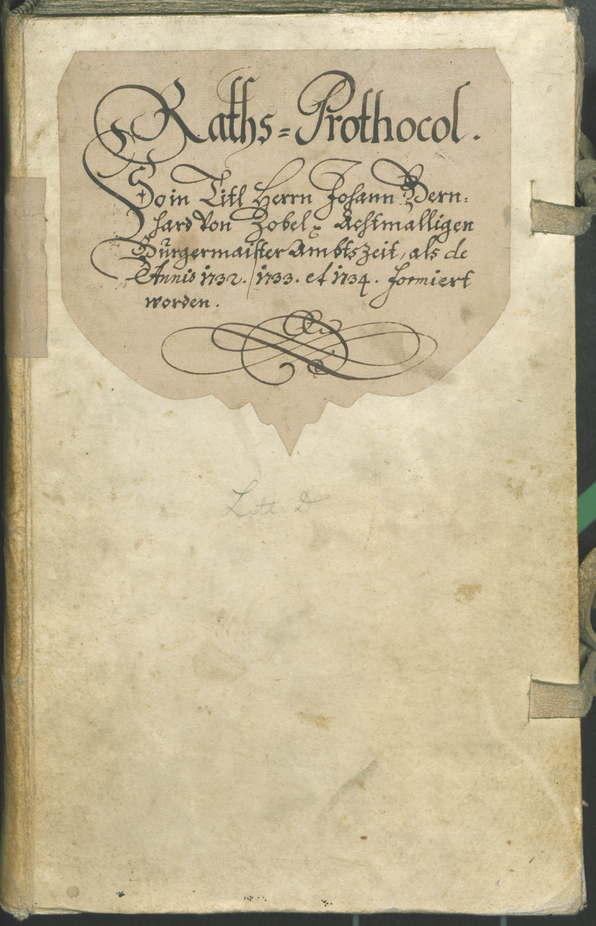 Raths=Prothocol.
So in Titl Herrn Johann Bern=
hard Von Zobel Achtmalligen
Bürgermaister Ambtszeit, als de
Annis 1732. 1733. et 1734. formiert
worden.
Litt. D